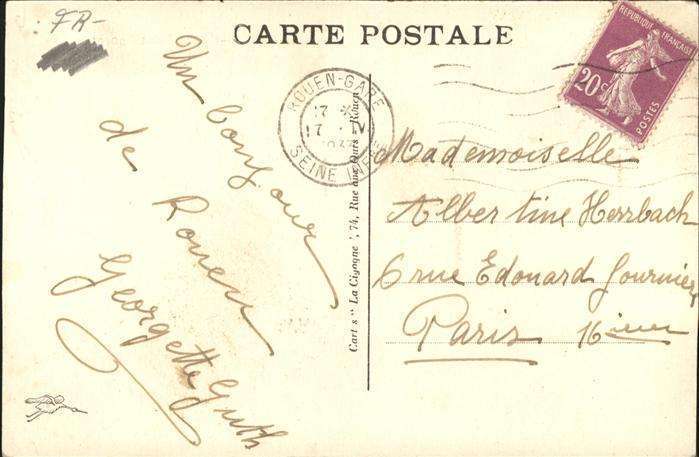 FR-
CARTE POSTALE
RÉPUBLIQUE FRANÇAISE
20c
POSTES
ROUEN-GARE
17
17 IV
SEINE INF
Un bonjour
de Rouen
Georgette Guth
Mademoiselle
Albertine Herrbach
6 rue Edouard Fournier
Paris 16ième
Cart s " La Cigogne ", 74, Rue aux Ours - Rouen